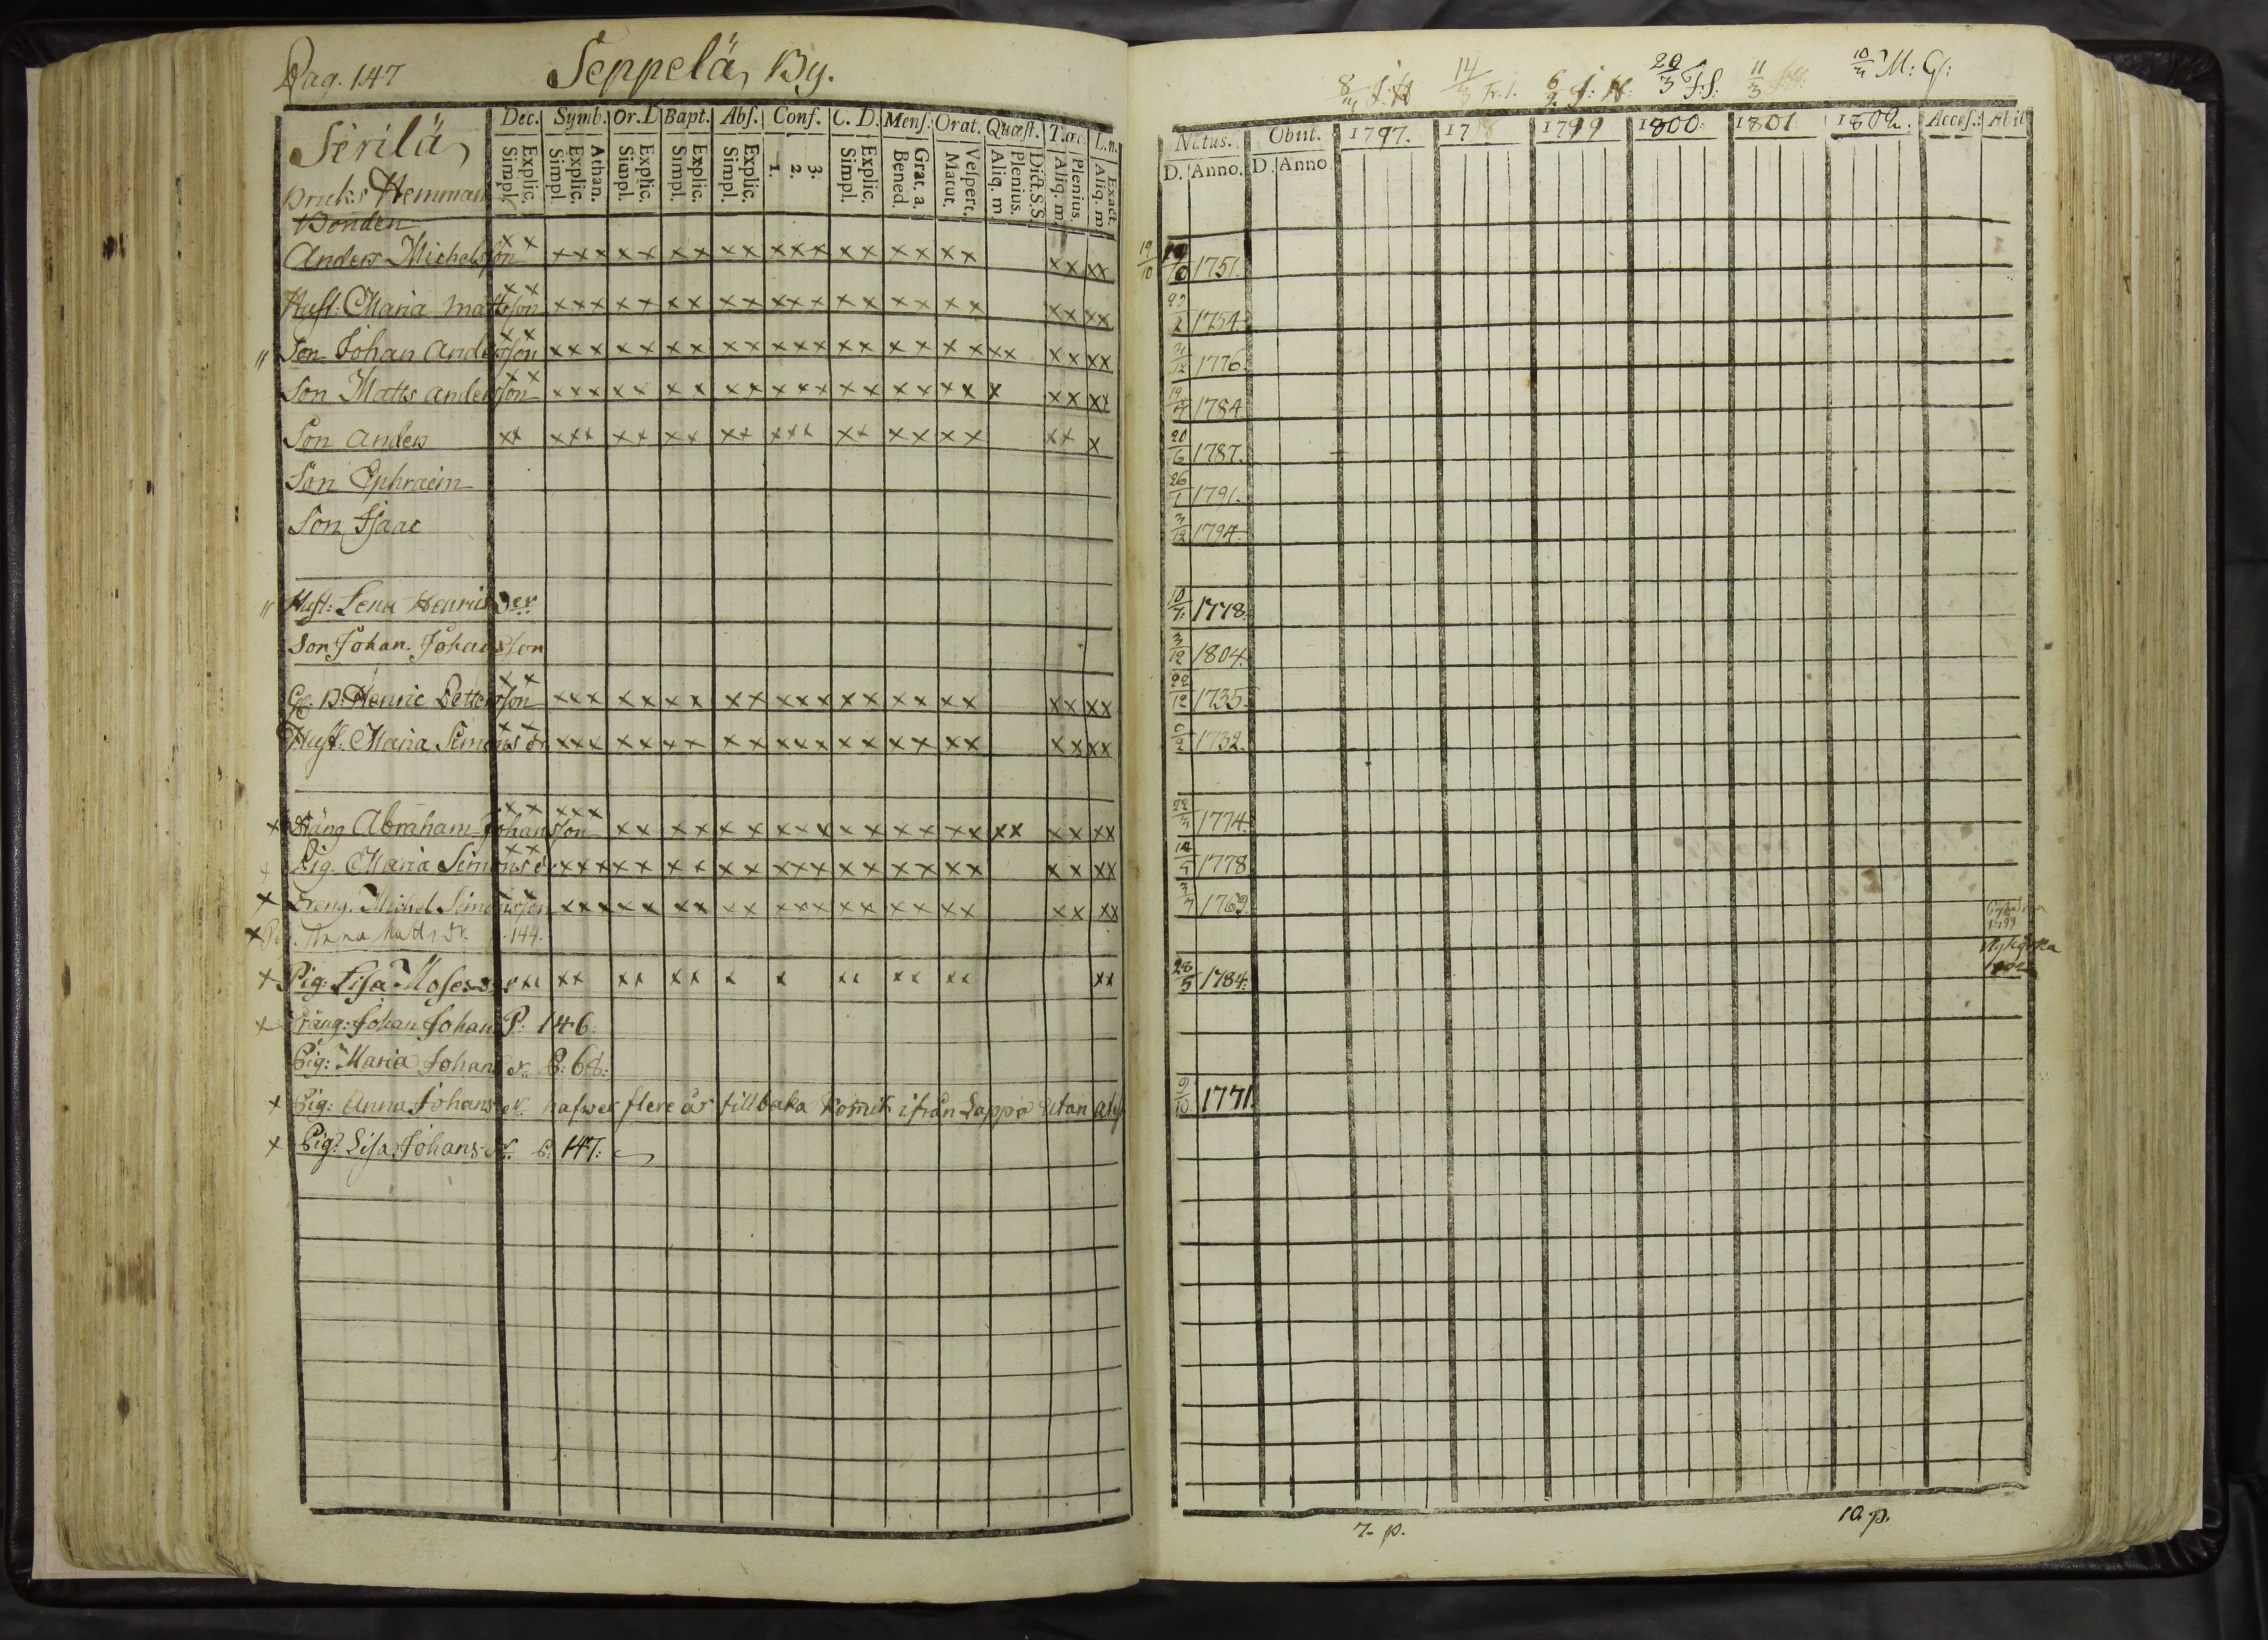 Pag. 147 Seppelä, By.
Sirilä,
Bruks Hemman
Bonden
Dec. Symb. Or. D Bapt. Abs. Conf. C. D. Mens. Orat. Quæst. T.œc. L.n.
Simpl. Explic. Simpl. Explic. Athan. Simpl. Explic. Simpl. Explic. Simpl. Explic. 1. 2. 3. Simpl. Explic. Bened. Grat. a. Matut. Vespert. Aliq. m Plenius. Dict.S.S Aliq. m Plenius. Aliq. m Exact.
Anders Michelsson xx xxx xx xx xx xxx xx xx xx xx xx
Hust: Maria Mattsson xx xxx xx xx xx xxx xx xx xx xx xx
" Son Johan Andersson xx xxx xx xx xx xxx xx xx xx xx xx xx
Son Matts Andersson xx xxx xx xx xx xxx xx xx xx x xx xx
Son Anders xx xxx xx xx xx xxx xx xx xx xx x
Son Ephraim
Son Isaac
" Hust: Lena Henricsdr
Son Johan Johansson
G. B. Henric Pettersson xx xxx xx xx xx xxx xx xx xx xx xx
Hust: Maria Simonsdr xx xxx xx xx xx xxx xx xx xx xx xx
x Dräng Abraham Johansson xx xxx xx xx xx xxx xx xx xx xx xx xx
x Pig. Maria Simonsd. xx xxx xx xx xx xxx xx xx xx xx xx
x Dreng. Michel Simonsson xx xxx xx xx xx xxx xx xx xx xx xx
x Pig. Anna Matts dr. p. 144.
x Pig: Lisa Mosesdr xx xx xx xx x x xx xx xx xx
x Dräng: Johan Johan P: 146.
Pig: Maria Johans dr. P: 68:
x Pig: Anna Johans dr. hafwer flere år tillbaka komit ifrån Lappo utan
x Pig: Lisa Johans dr. P: 147:
14/3 6/9 20/3 11/3 M: G:
Natus. Obiit. 1797. 17 1799 1800. 1801 1802. Acces.: Abiit
D. Anno. D. Anno
19/10 1751.
1754.
1776.
19/4 1784
20/6 1787.
26/1 1791.
3/12 1794.
10/7. 1778.
3/12 1804.
22/12 1735.
1732.
1774.
1778
1769.
1799
Nykyrka
28/5 1784.
9/10 1771.
7. p. 10. p.